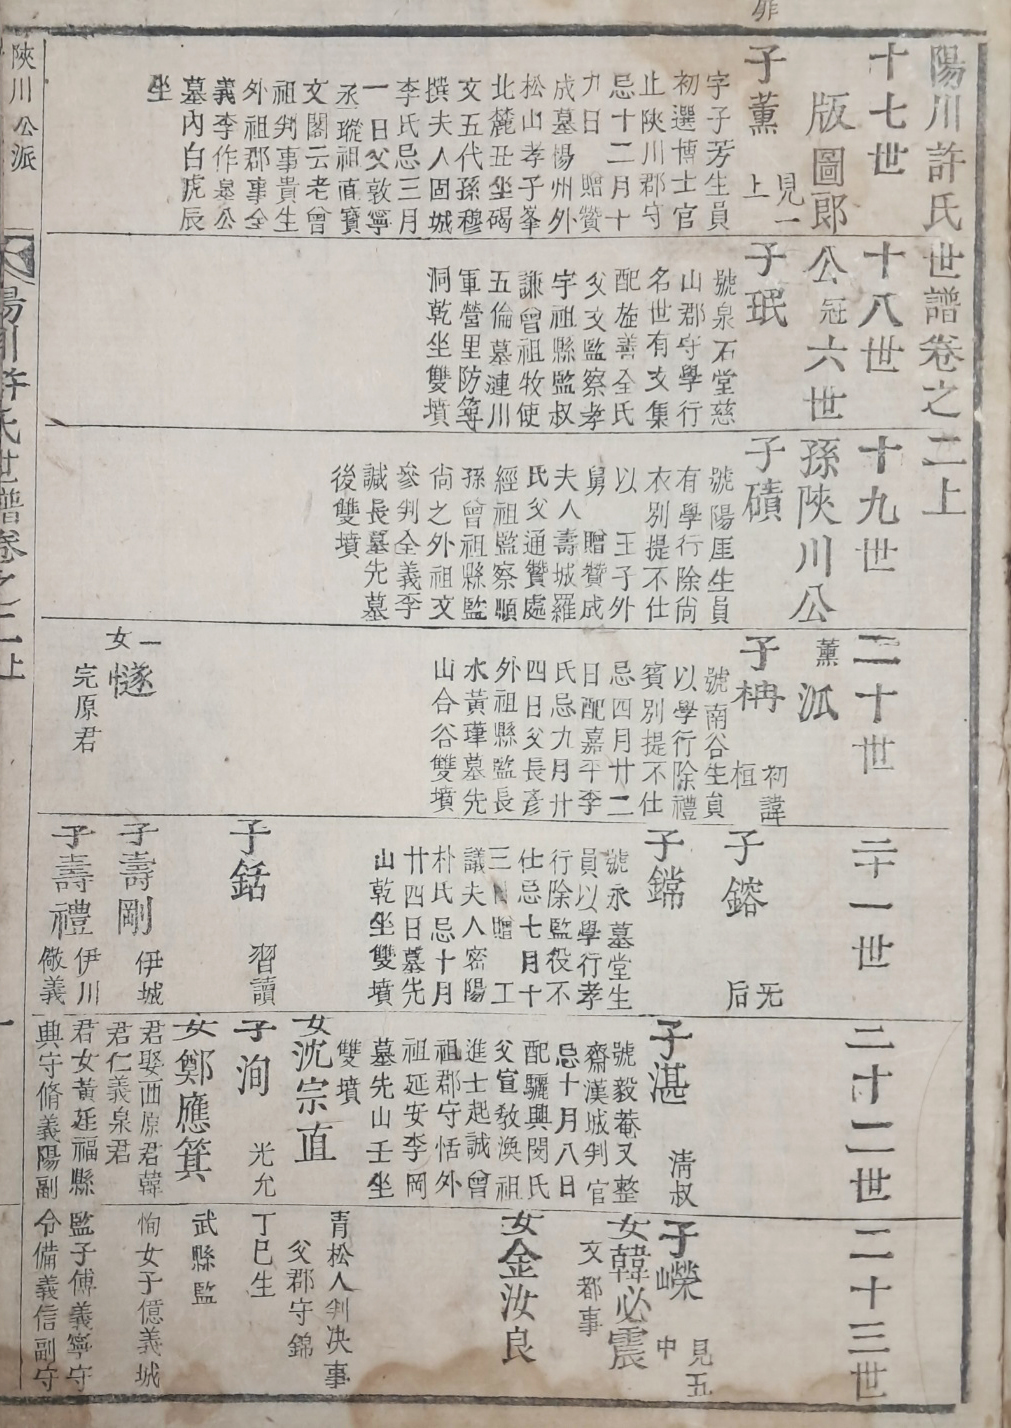 陽川許氏世譜卷之二上
十七世
十八世
十九世
二十世
二十一世
二十二世
二十三世
版圖郎公冠六世孫陜川公薰派
子薰
見一
上
字子芳生員
初選博士官
止陜川郡守
忌十二月十
九日 贈贊
成墓楊州外
松山孝子峯
北麓丑坐碣
文五代孫穆
撰夫人固城
李氏忌三月
一日父敦寧
丞瑽祖直寶
文閣云老曾
祖判事貴生
外祖郡事全
義李作墓公
墓內白虎辰
坐
子珉
號泉石堂慈
山郡守學行
名世有文集
配旌善全氏
父文監察孝
宇祖縣監叔
謙曾祖牧使
五倫墓漣川
軍營里防築
洞乾坐雙墳
子磧
號陽厓生員
有學行除尙
衣別提不仕
以 王子外
舅 贈贊成
夫人壽城羅
氏父通贊處
經祖監察順
孫曾祖縣監
尙之外祖文
參判全義李
諴長墓先墓
後雙墳
子柟
初諱
桓
號南谷生員
以學行除禮
賓別提不仕
忌四月廿二
日配嘉平李
氏忌九月廿
四日父長彥
外祖縣監長
水黃瑾墓先
山合谷雙墳
一
女
𢢝
完原君
子鎔
无
后
子鐺
號永墓堂生
員以學行孝
行除監役不
仕忌七月十
三日贈 工
議夫人密陽
朴氏忌十月
廿四日墓先
山乾坐雙墳
子銛
習讀
子壽剛
伊城
子壽禮
伊川
儆義
子湛
淸叔
號毅菴又整
齋漢城判官
忌十月八日
配驪興閔氏
父宣敎渙祖
進士起誠曾
祖郡守恬外
祖延安李岡
墓先山壬坐
雙墳
女沈宗直
子洵
光允
女鄭應箕
君娶西原君韓
君仁義泉君
君女黃廷福縣
典守脩義陽副
子嶸
見五
中
女韓必震
文都事
女金汝良
靑松人判决事
父郡守錦
丁巳生
武縣監
恂女子億義城
監子傅義寧守
令備義信副守
陜川公派
陽川許氏世譜卷之二上